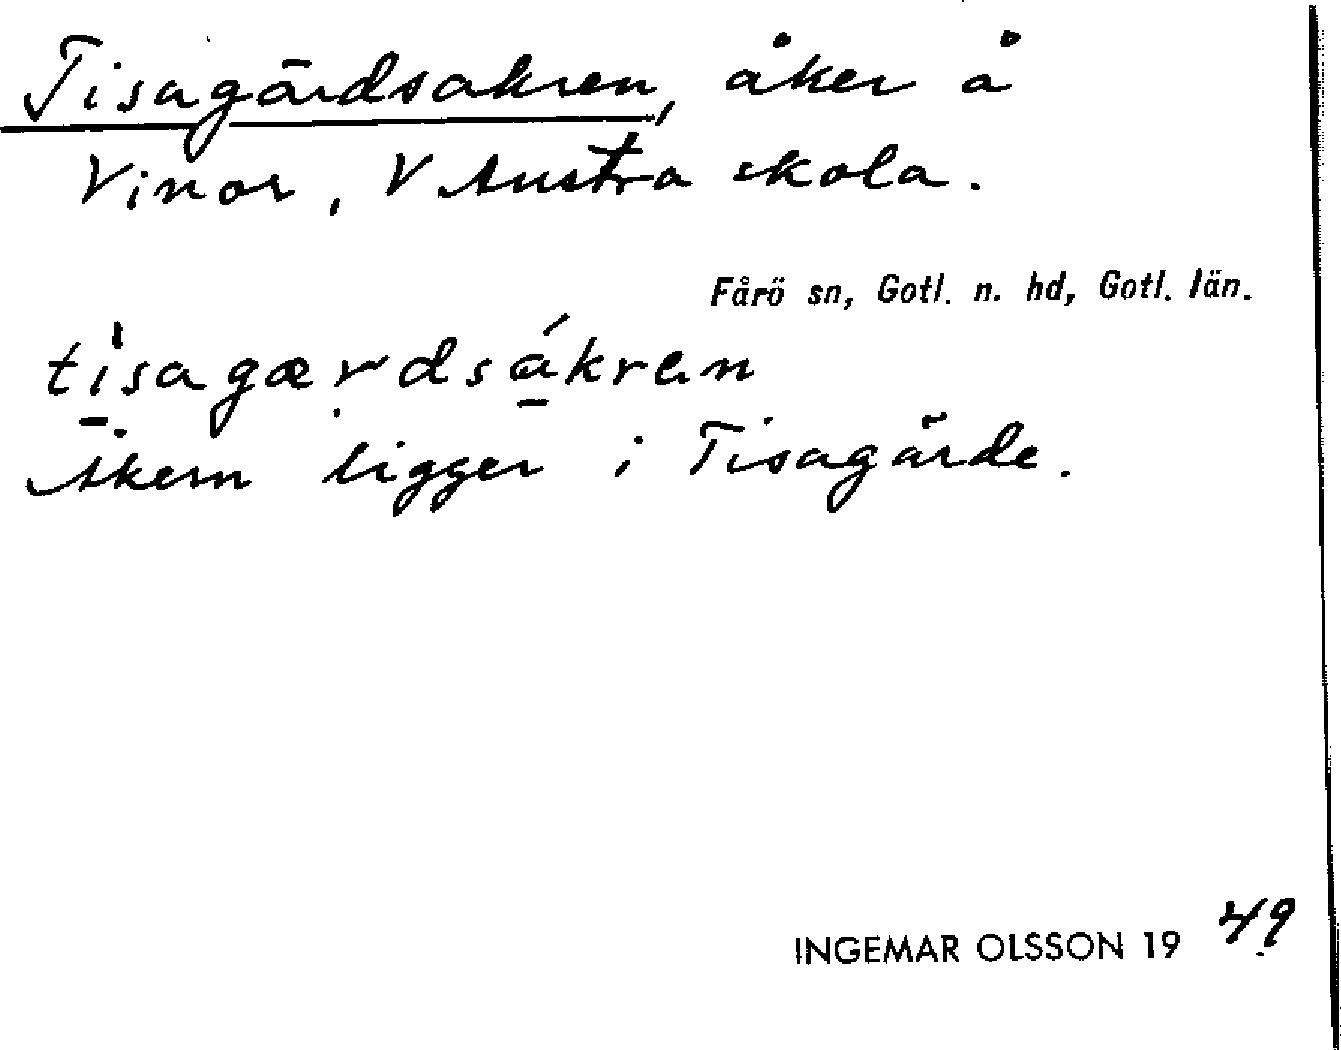 Tisagärdsakren, åker å
Vinor, V Austra skola.
Fårö sn, Gotl. n. hd, Gotl. län.
ti̱sagærdsá̱kren
Åkern ligger i Tisagärde.
INGEMAR OLSSON 19 49